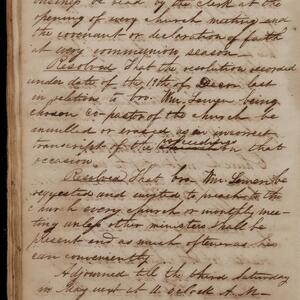 be read by the Clerk at the
opening of every church meeting and
the covenant or declaration of faith
at every communion season.
Resolved That the resolution recorded
under date of the 19th of Decem last
in relation to bro. Wm. Lowen being
chosen co-pastor of the church be
annulled or erased as an incorrect
transcript of the proceedings on that
occasion.
Resolved That bro. Wm Lowen be
requested and invited to preach to the
church every church or monthly mee-
ting unless other ministers shall be
present and as much oftener as he
can conveniently
Adjourned till the third Saturday
in May next at 11 oclock A.M.